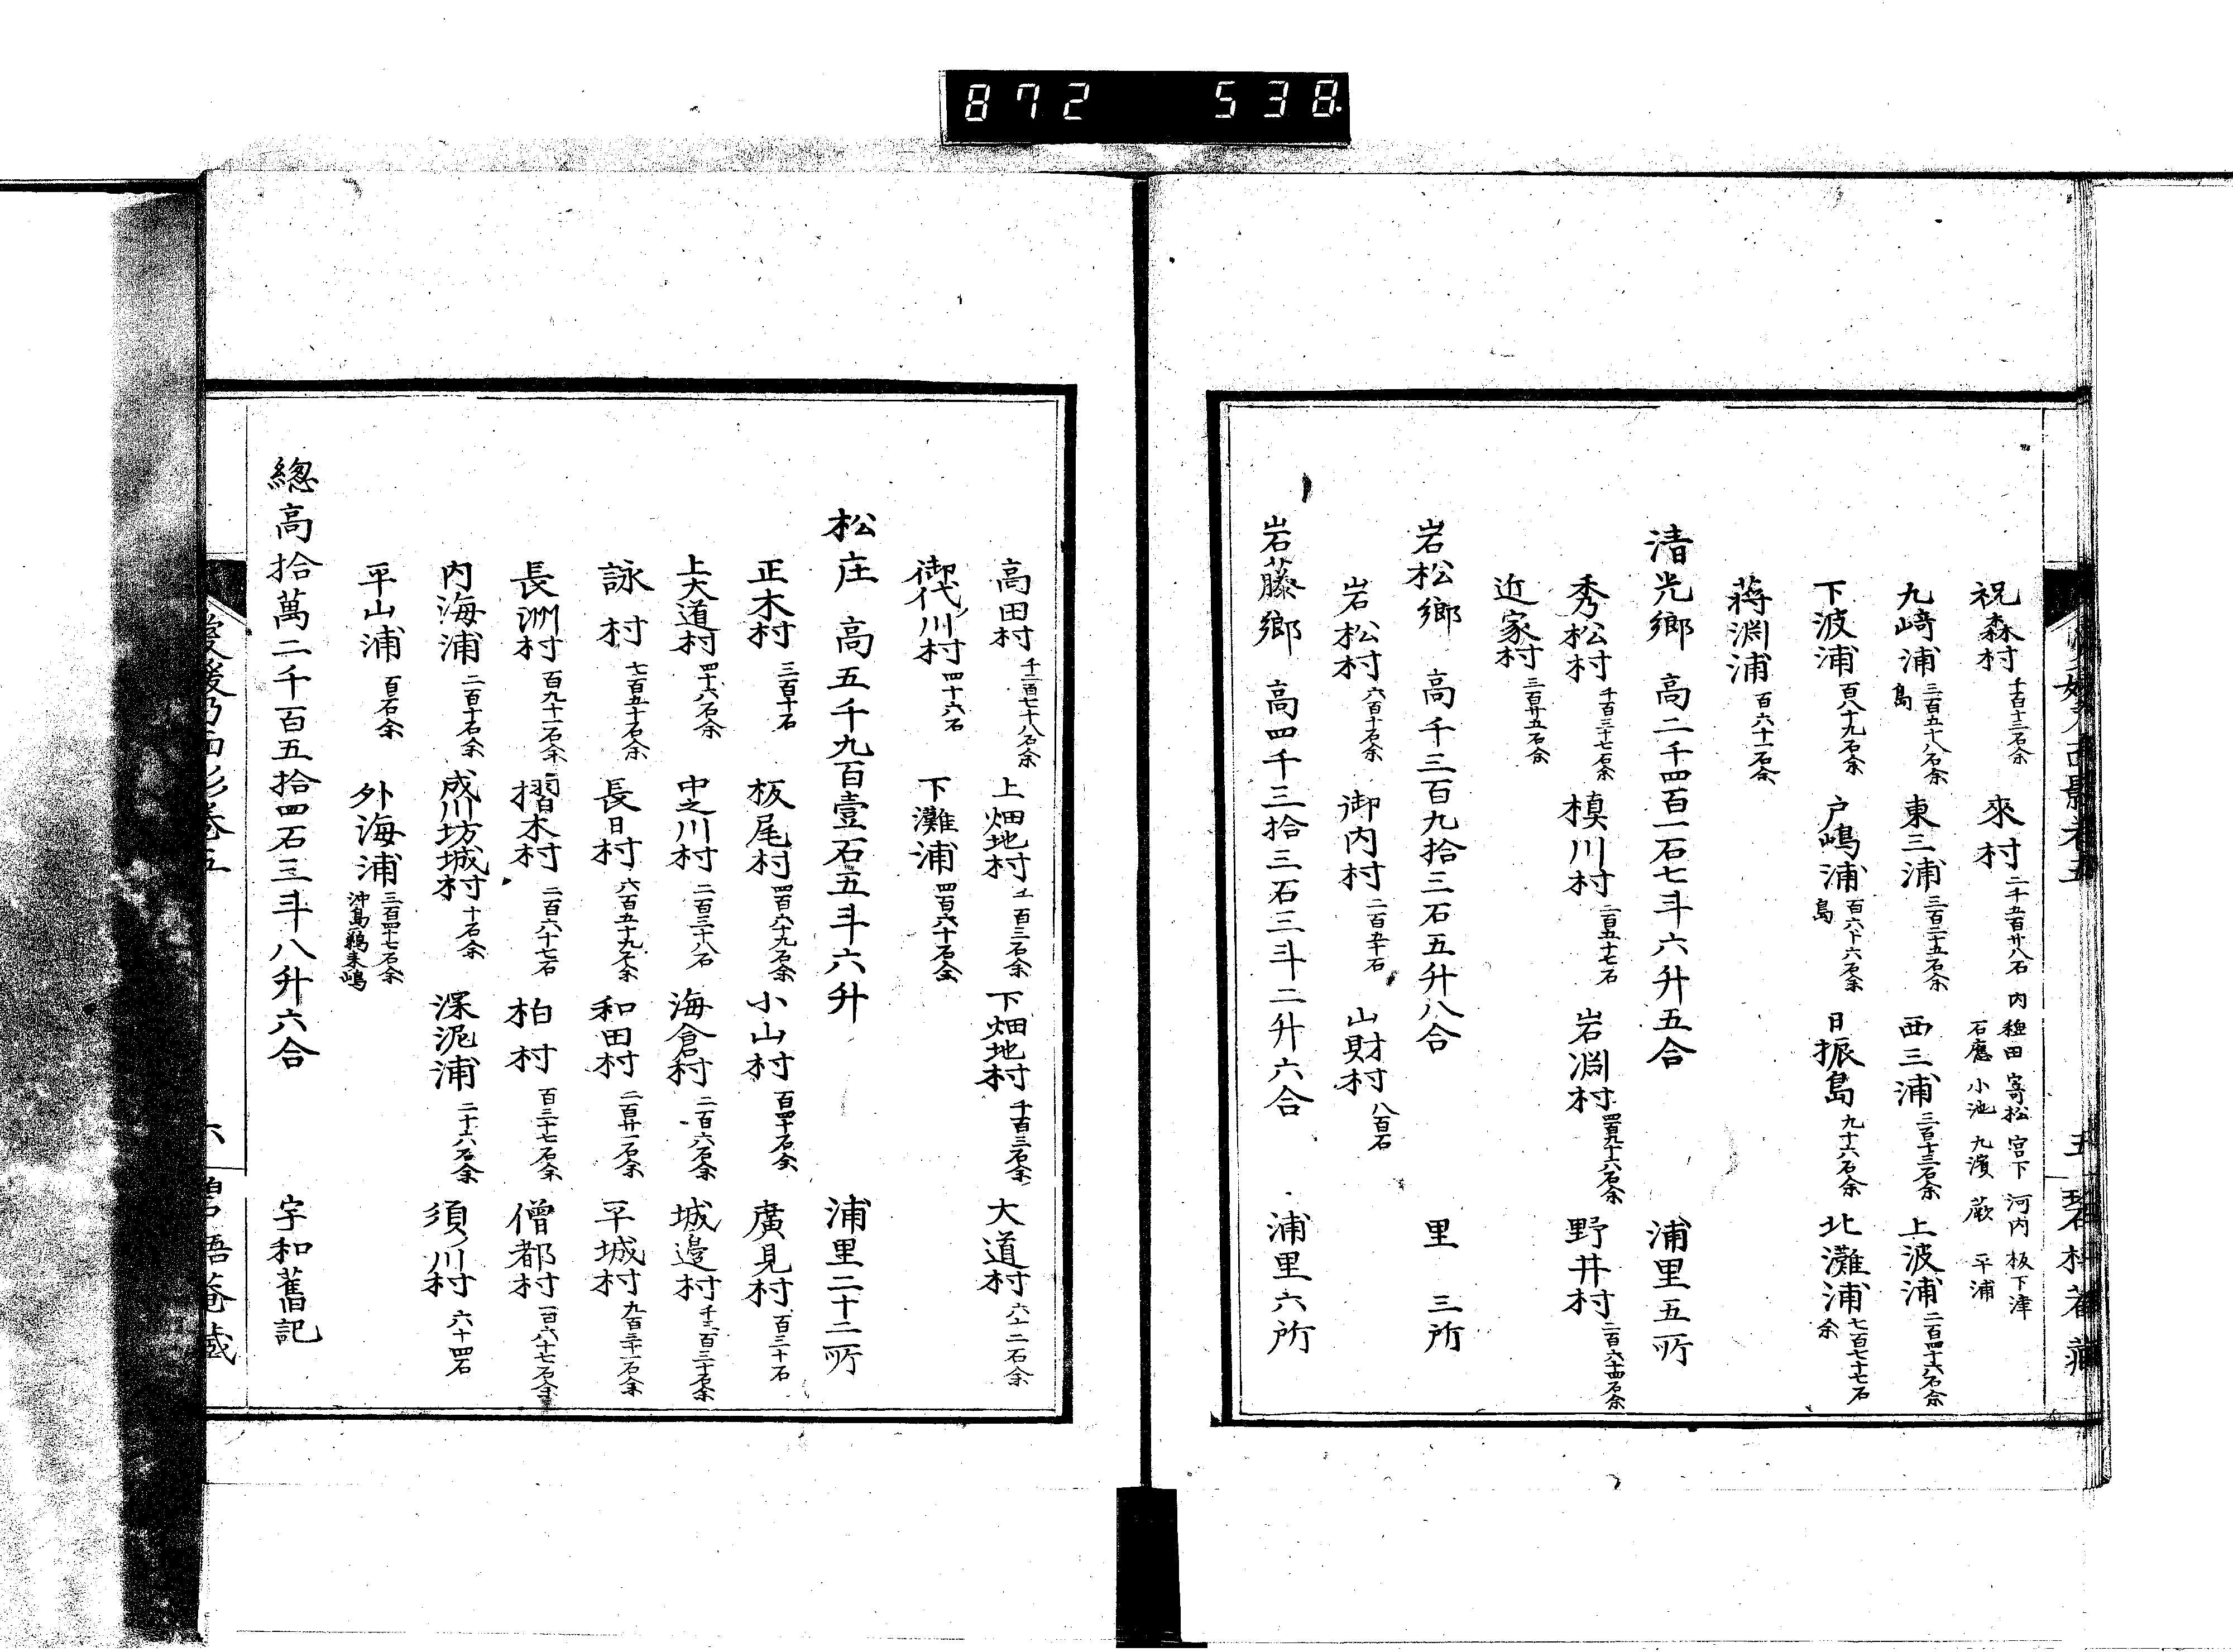 872 538
祝森村 千百十三石余 來村 二千五百廿八石 内 稗田 寄松 宮下 河内 板下津 石應 小池 九濱 蕨 平浦
九﨑浦 三百五十八石余 島 東三浦 三百二十五石余 西三浦 三百十三石余 上波浦 二百四十六石余
下波浦 百八十九石余 戸嶋浦 百六十六石余 島 日振島 九十六石余 北灘浦 七百七十七石余
蒋渕浦 百六十一石余
清光郷 高二千四百一石七斗六升五合 浦里五所
秀松村 千百三十七石余 槙川村 二百五十七石 岩渕村 四百九十六石余 野井村 二百六十四石余
近家村 三百廿五石余
岩松郷 高千三百九拾三石五升八合 里 三所
岩松村 六百十石余 御内村 二百五十石 山財村 八百石
岩藤郷 高四千三拾三石三斗二升六合 浦里六所
高田村 千二百七十八石余 上畑地村 百三石余 下畑地村 千百三石余 大道村 二石余
御代川村 四十六石 下灘浦 四百六十石余
松庄 高五千九百壹石五斗六升 浦里二十二所
正木村 三百十石 板尾村 四百六十九石余 小山村 百四十石余 廣見村 百三十石
上大道村 四十六石余 中之川村 二百三十八石 海倉村 二百六石余 城邊村 千三百三十石余
詠村 七百五十石余 長日村 六百五十九石余 和田村 二百廿一石余 平城村 九百三十一石余
長洲村 百九十一石余 摺木村 二百六十七石 柏村 百三十七石余 僧都村 一百六十七石余
内海浦 二百十石余 成川坊城村 十石余 深泥浦 二十六石余 須ノ川村 六十四石
平山浦 百石余 外海浦 三百四十七石余 沖島 鵜来嶋
總高拾萬二千百五拾四石三斗八升六合 宇和舊記